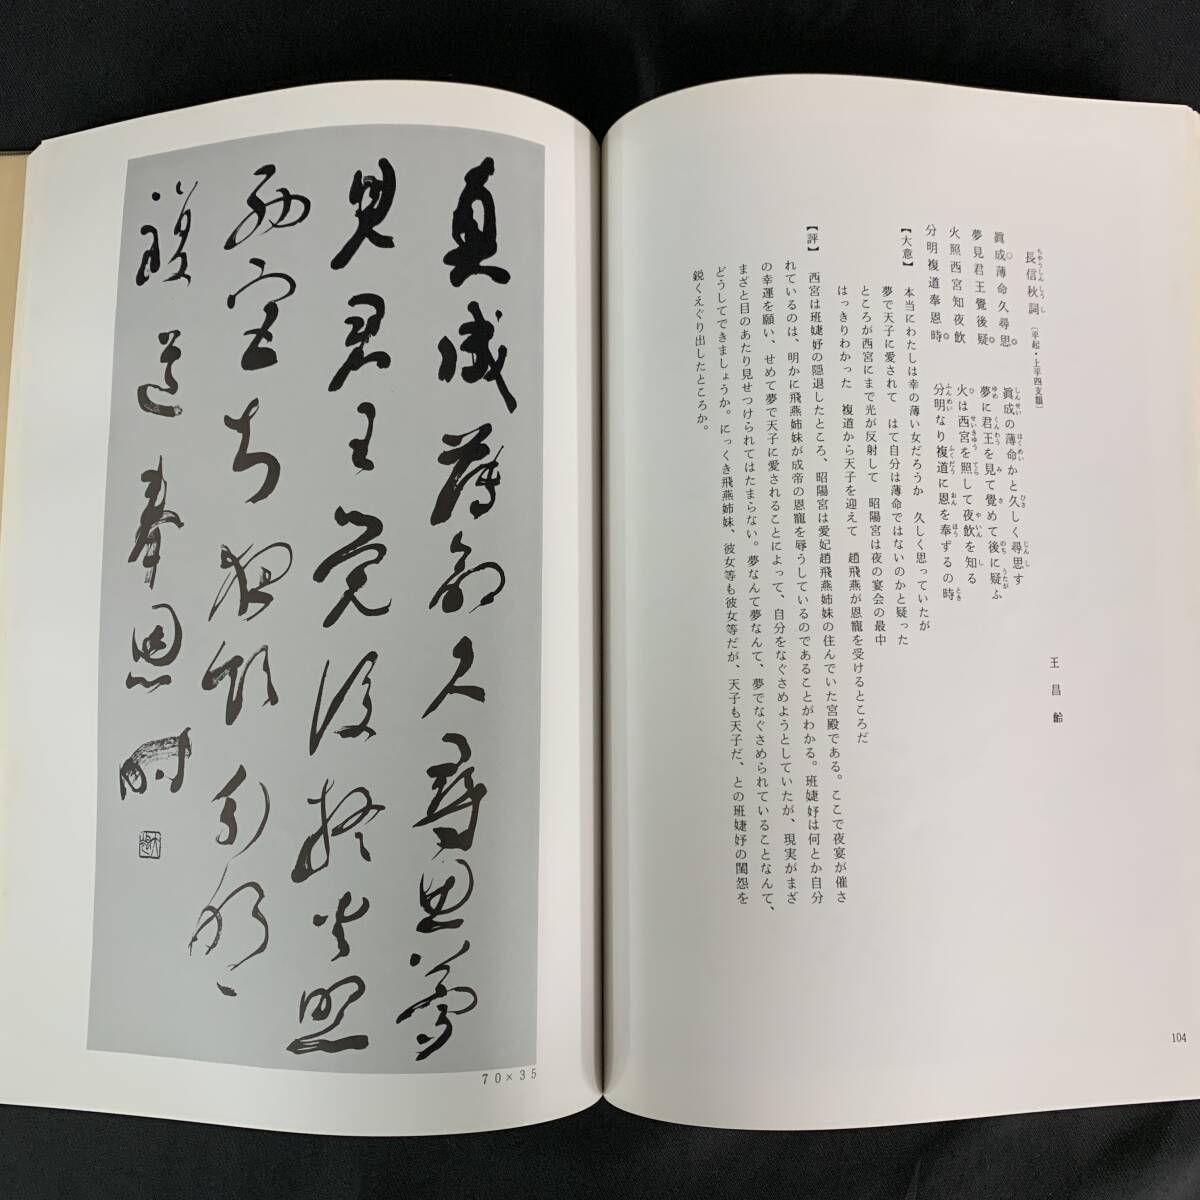 長信秋詞〔平起・上平四支韻〕
ちやうしんしうし
王昌齢
眞成薄命久尋思
夢見君王覺後疑
火照西宮知夜飲
分明複道奉恩時
眞成の薄命かと久しく尋思す
しんせい はくめい ひさ じんし
夢に君王を見て覺めて後に疑ふ
ゆめ くんわう み さ のち うたが
火は西宮を照して夜飲を知る
ひ せいきゆう てら やいん し
分明なり複道に恩を奉ずるの時
ふんめい ふくだう おん ほう とき
【大意】 本当にわたしは幸の薄い女だろうか 久しく思っていたが
夢で天子に愛されて はて自分は薄命ではないのかと疑った
ところが西宮にまで光が反射して 昭陽宮は夜の宴会の最中
はっきりわかった 複道から天子を迎えて 趙飛燕が恩寵を受けるところだ
【評】 西宮は班婕妤の隠退したところ、昭陽宮は愛妃趙飛燕姉妹の住んでいた宮殿である。ここで夜宴が催さ
れているのは、明かに飛燕姉妹が成帝の恩寵を辱うしているのであることがわかる。班婕妤は何とか自分
の幸運を願い、せめて夢で天子に愛されることによって、自分をなぐさめようとしていたが、現実がまざ
まざと目のあたり見せつけられてはたまらない。夢なんて夢なんて、夢でなぐさめられていることなんて、
どうしてできましょうか。にっくき飛燕姉妹、彼女等も彼女等だが、天子も天子だ、との班婕妤の閨怨を
鋭くえぐり出したところか。
104
真成薄命久尋思夢
見君王覚後疑火照
西宮知夜飲分明
複道奉恩時
70×35